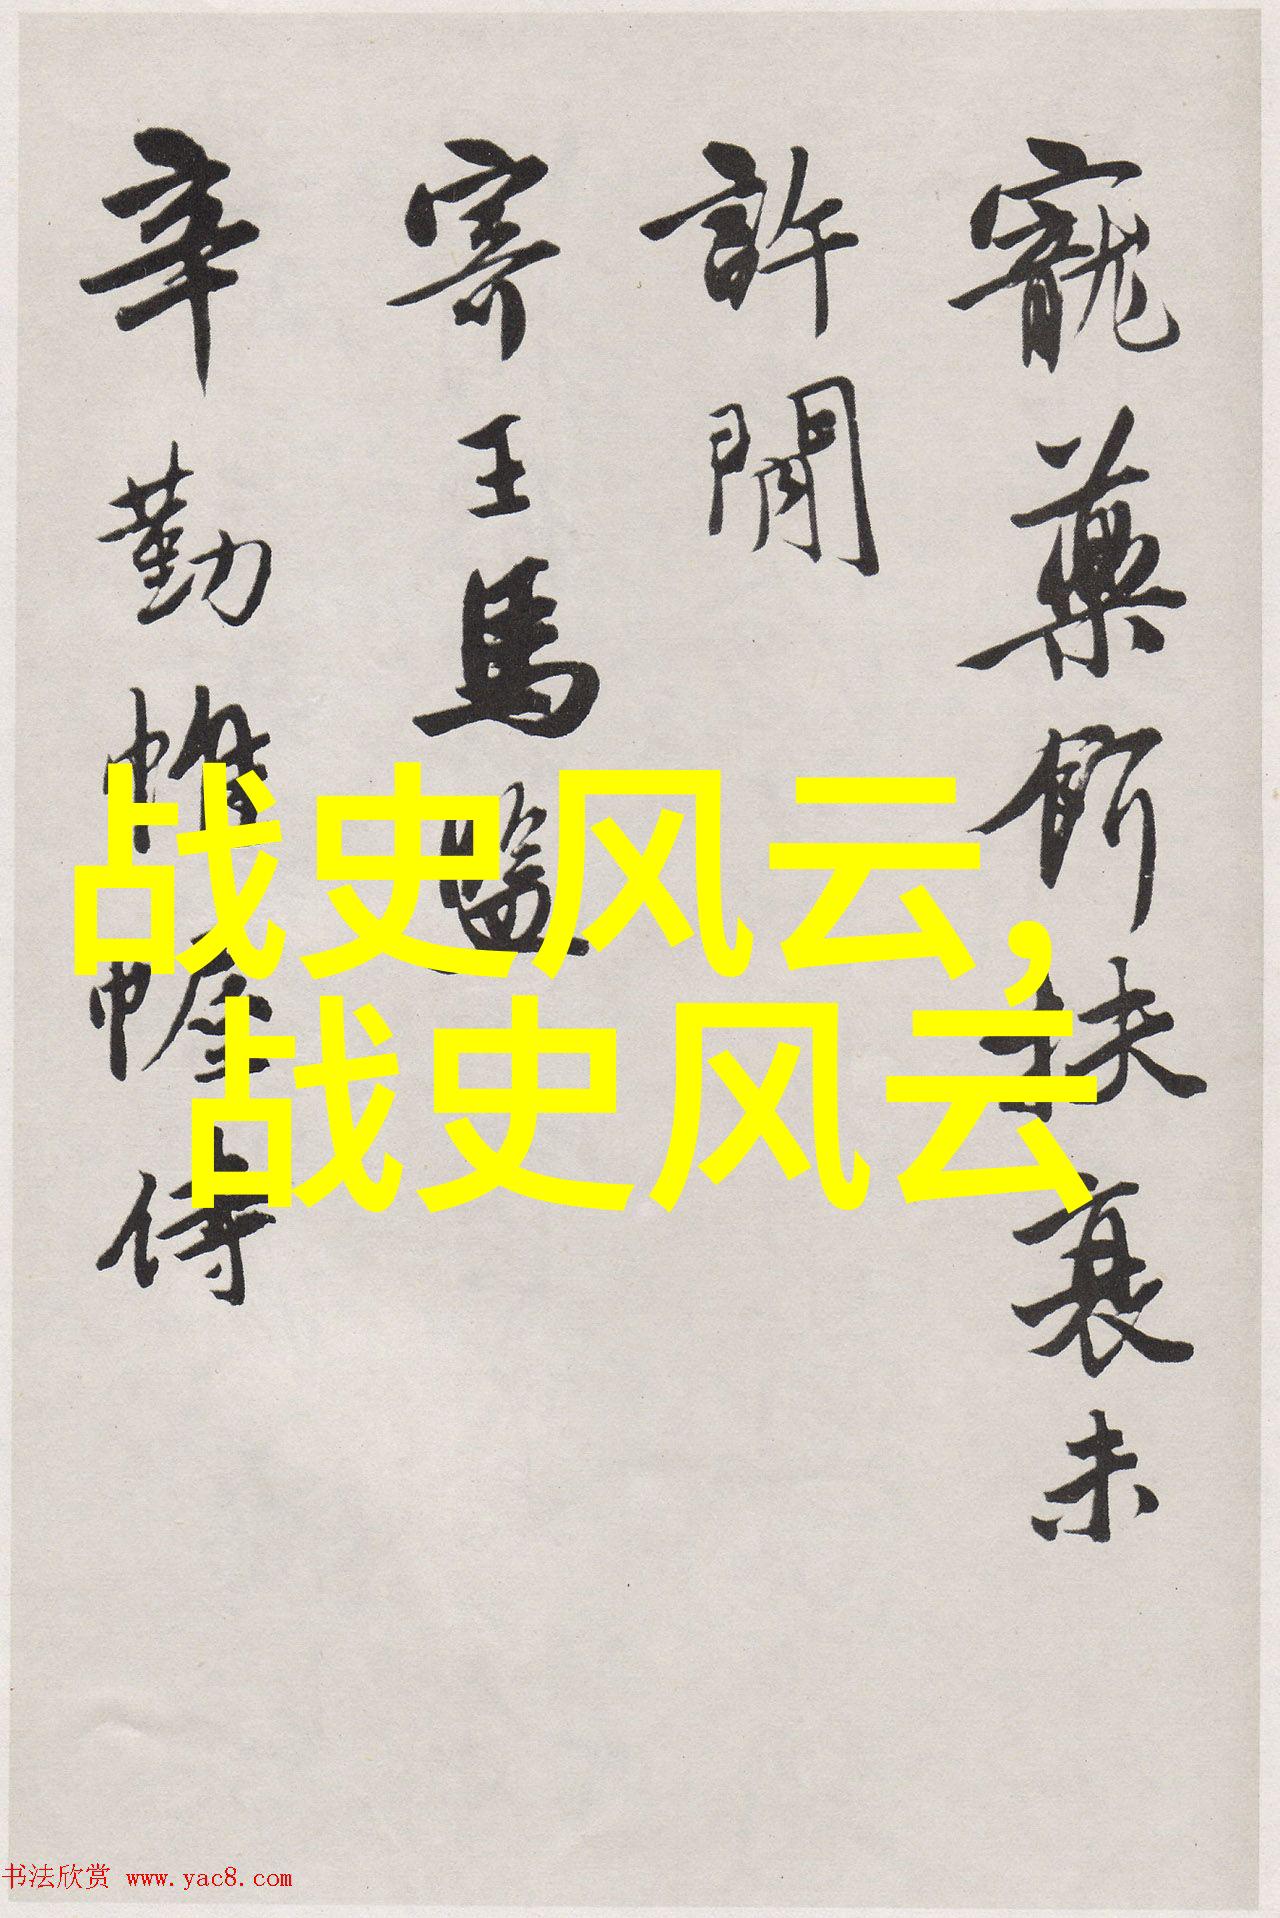 寵藥餌扶衰未
許閒
寄王馬
辛勤帷幄侍
战史风云,
战史风云
书法欣赏 www.yac8.com